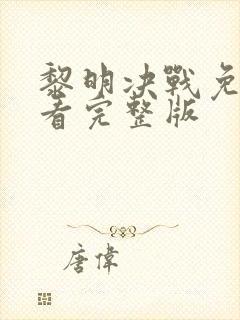 黎明决戰免
看完整版
唐偉